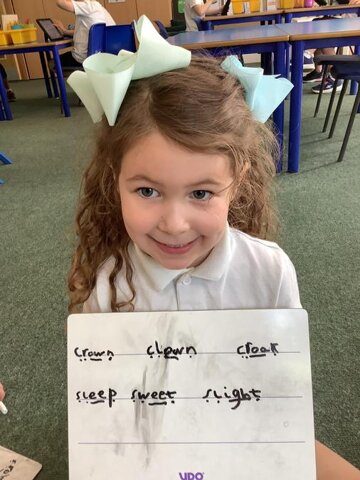 crown clown cloak
sleep sweet slight
UDO